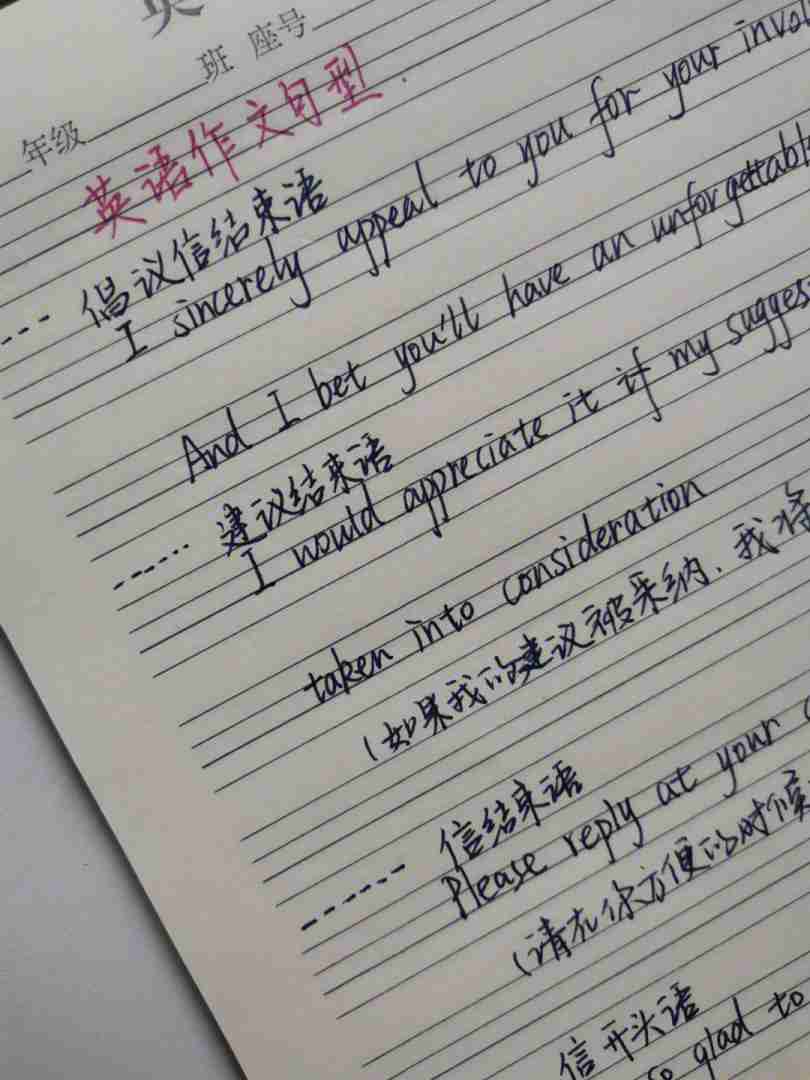 英
年级 班 座号
英语作文句型.
--- 倡议信结束语
I sincerely appeal to you for your
And I bet you'll have an unforgettable
建议结束语
I would appreciate it if my
taken into consideration
(如果我的建议被采纳, 我将
信结束语
Please reply at your
(请在你方便的时候
信开头语
so glad to